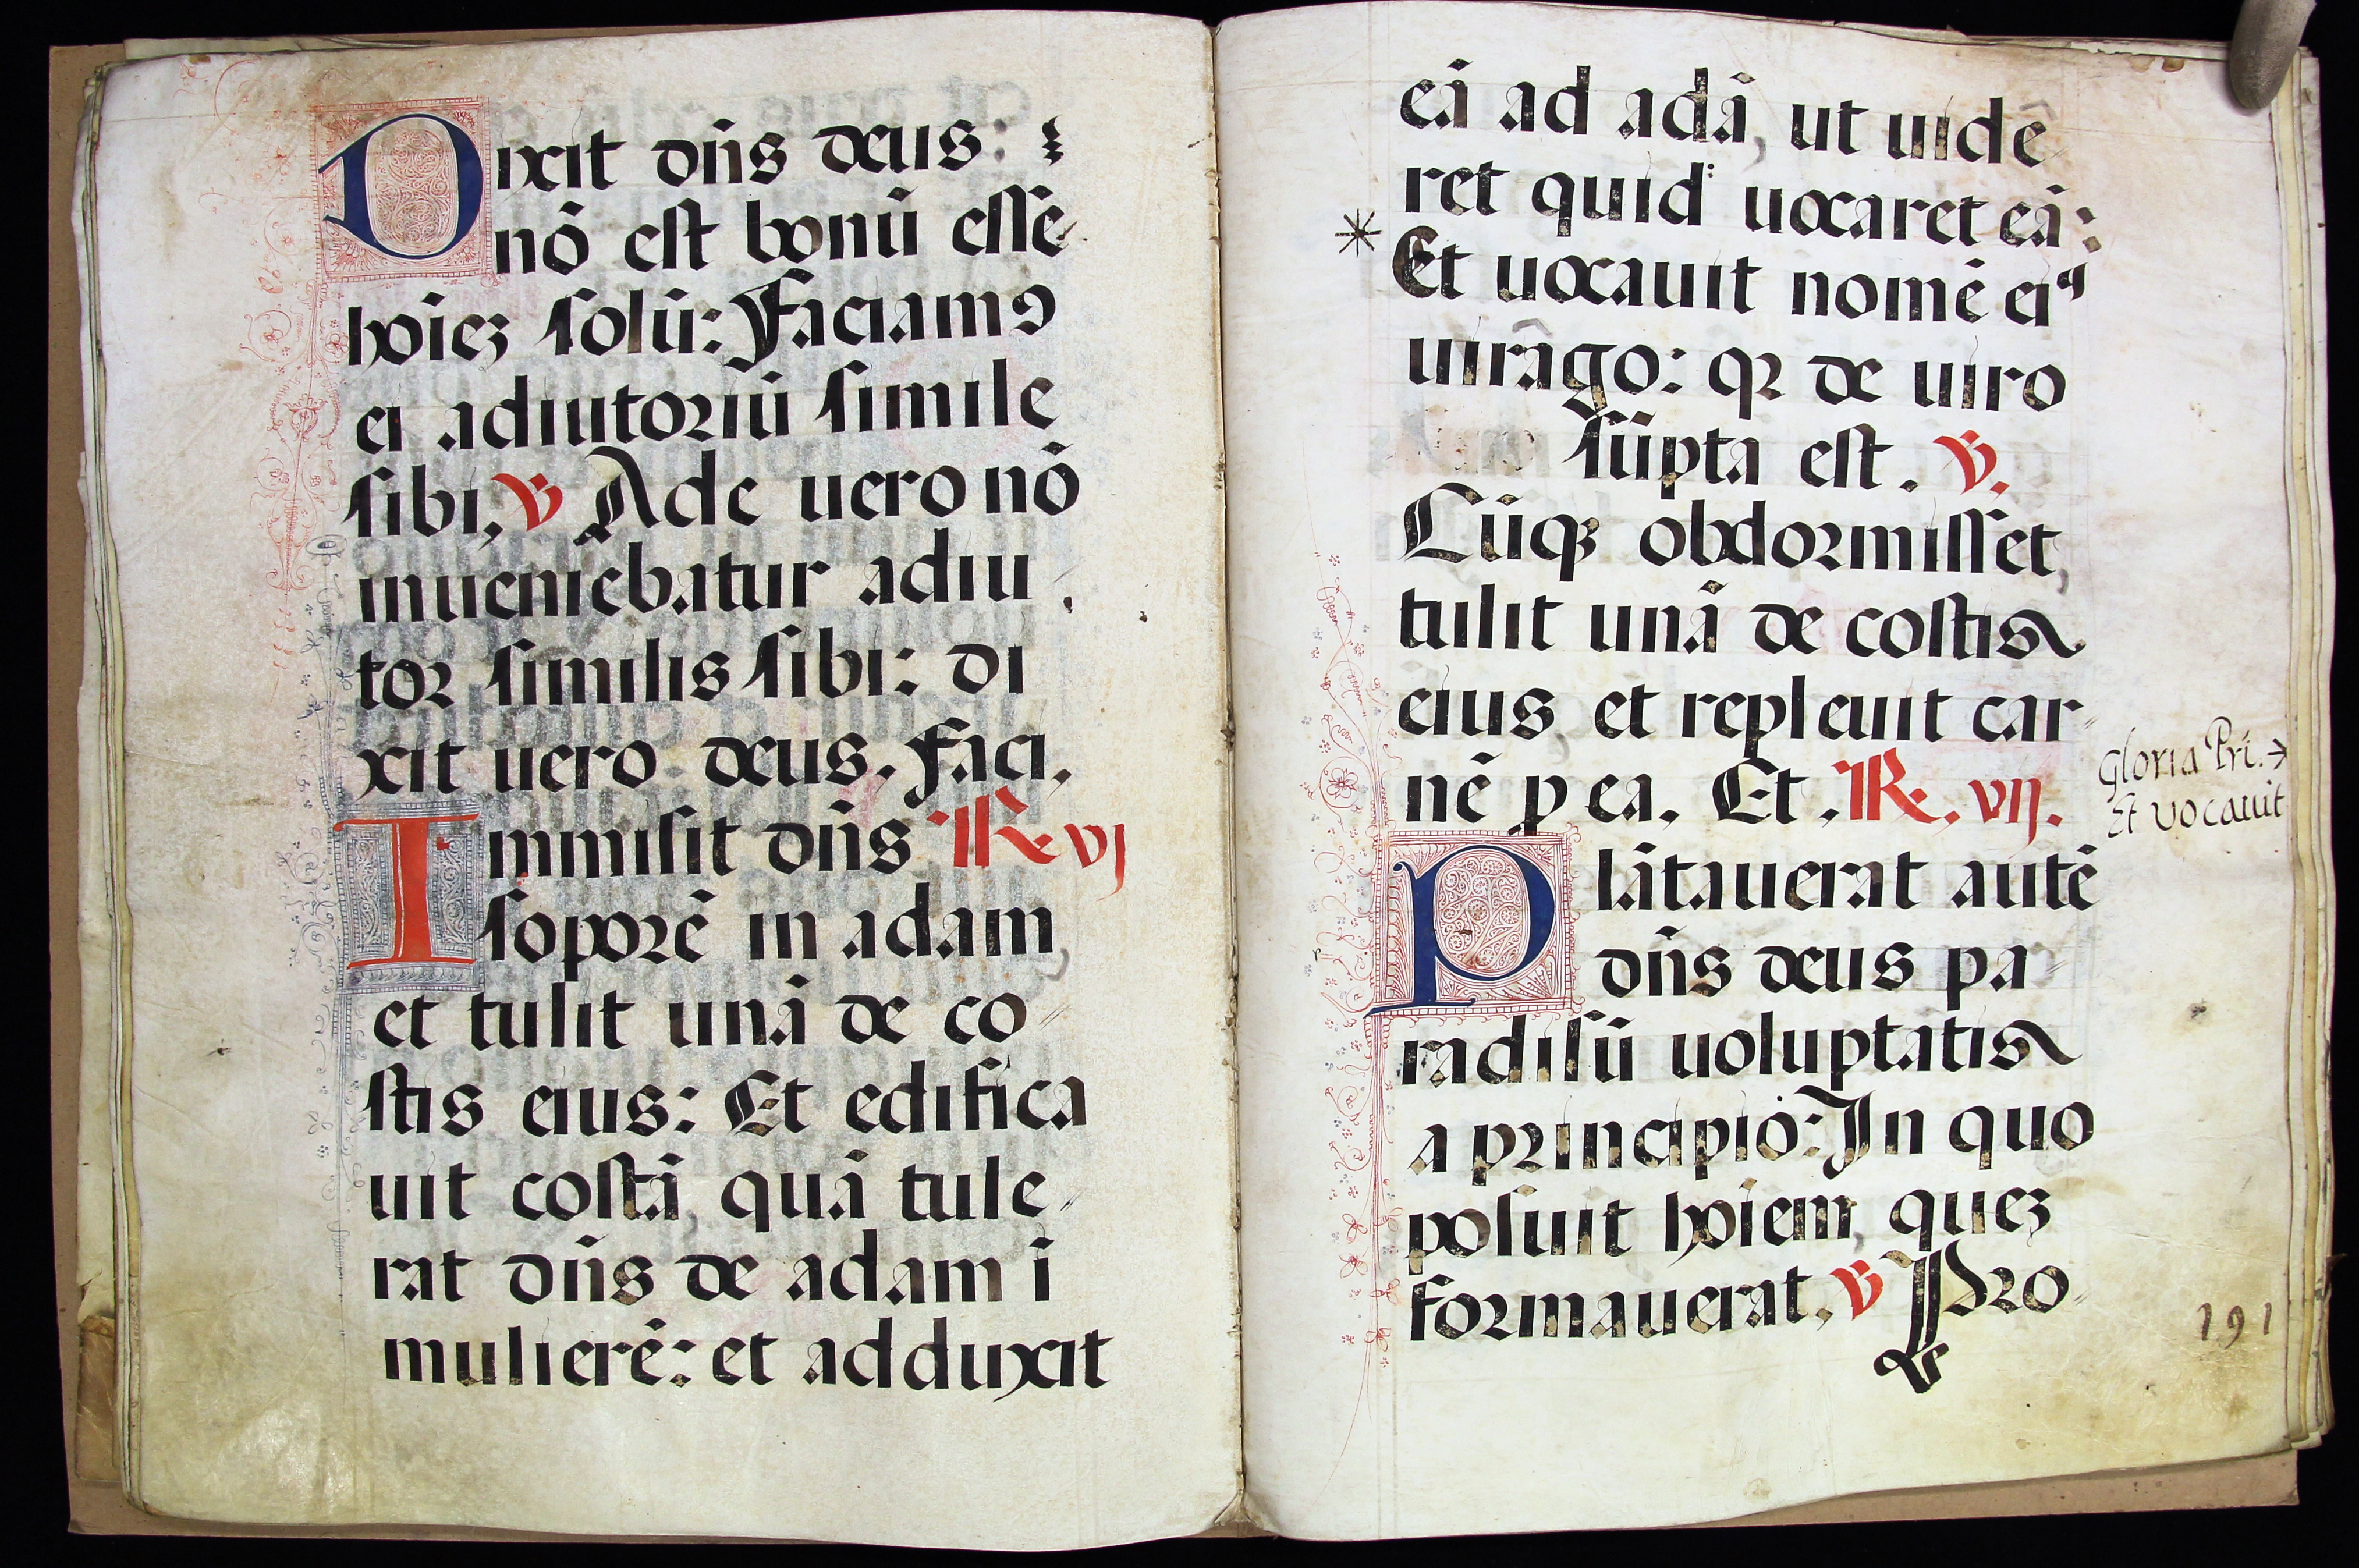 Dixit dn̄s deus:
nō est bonū esse
hōiez solū: Faciamꝰ
ei adiutoriū simile
sibi, ℣ Ade uero nō
inueniebatur adiu
tor similis sibi: di
xit uero deus, Faci,
Immisit dn̄s ℟ vj
soporē in adam,
et tulit unā de co
stis eius: Et edifica
uit costā, quā tule
rat dn̄s de adam ī
mulierē: et adduxit
eā ad adā, ut uide
ret quid uocaret eā:
* Et uocauit nomē eiꝰ
uirâgo: qꝛ de uiro
sūpta est. ℣.
Cūqꝫ obdormisset,
tulit unā de costis
eius, et repleuit car
nē ꝓ ea. Et. ℟. vij.
Gloria Pri. →
Et vocauit
Plātauerat autē
dn̄s deus pa
radisū uoluptatis
a principio: In quo
posuit hōiem, quez
formauerat, ℣ Pro
191